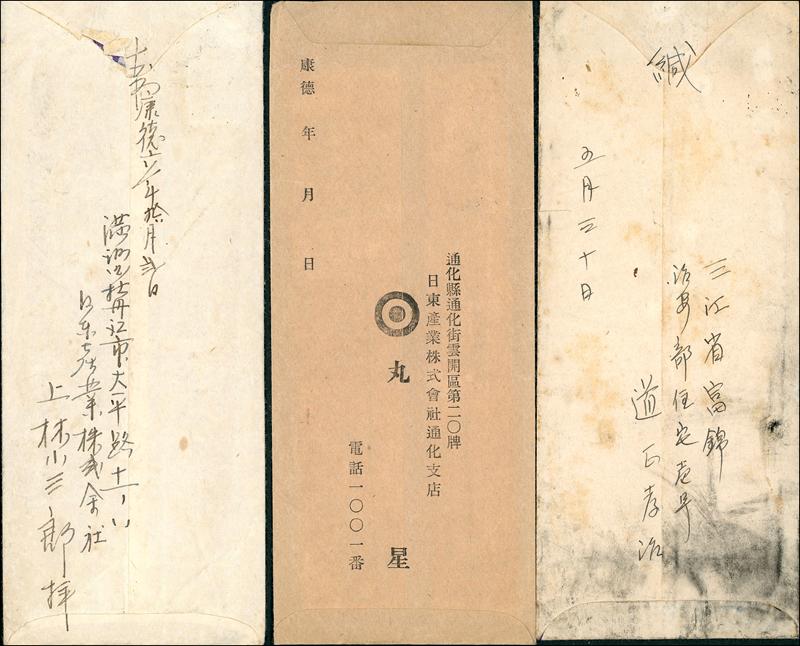 康德六年拾月弐日
満洲国牡丹江市太平路十一ノ一
日東産業株式会社
上林小三郎拝
康德　年　月　日
通化縣通化街雲開區第二〇牌
日東產業株式會社通化支店
丸星
電話一〇〇一番
緘
五月三十日
三江省富錦
治安部住宅壱号
道正孝治